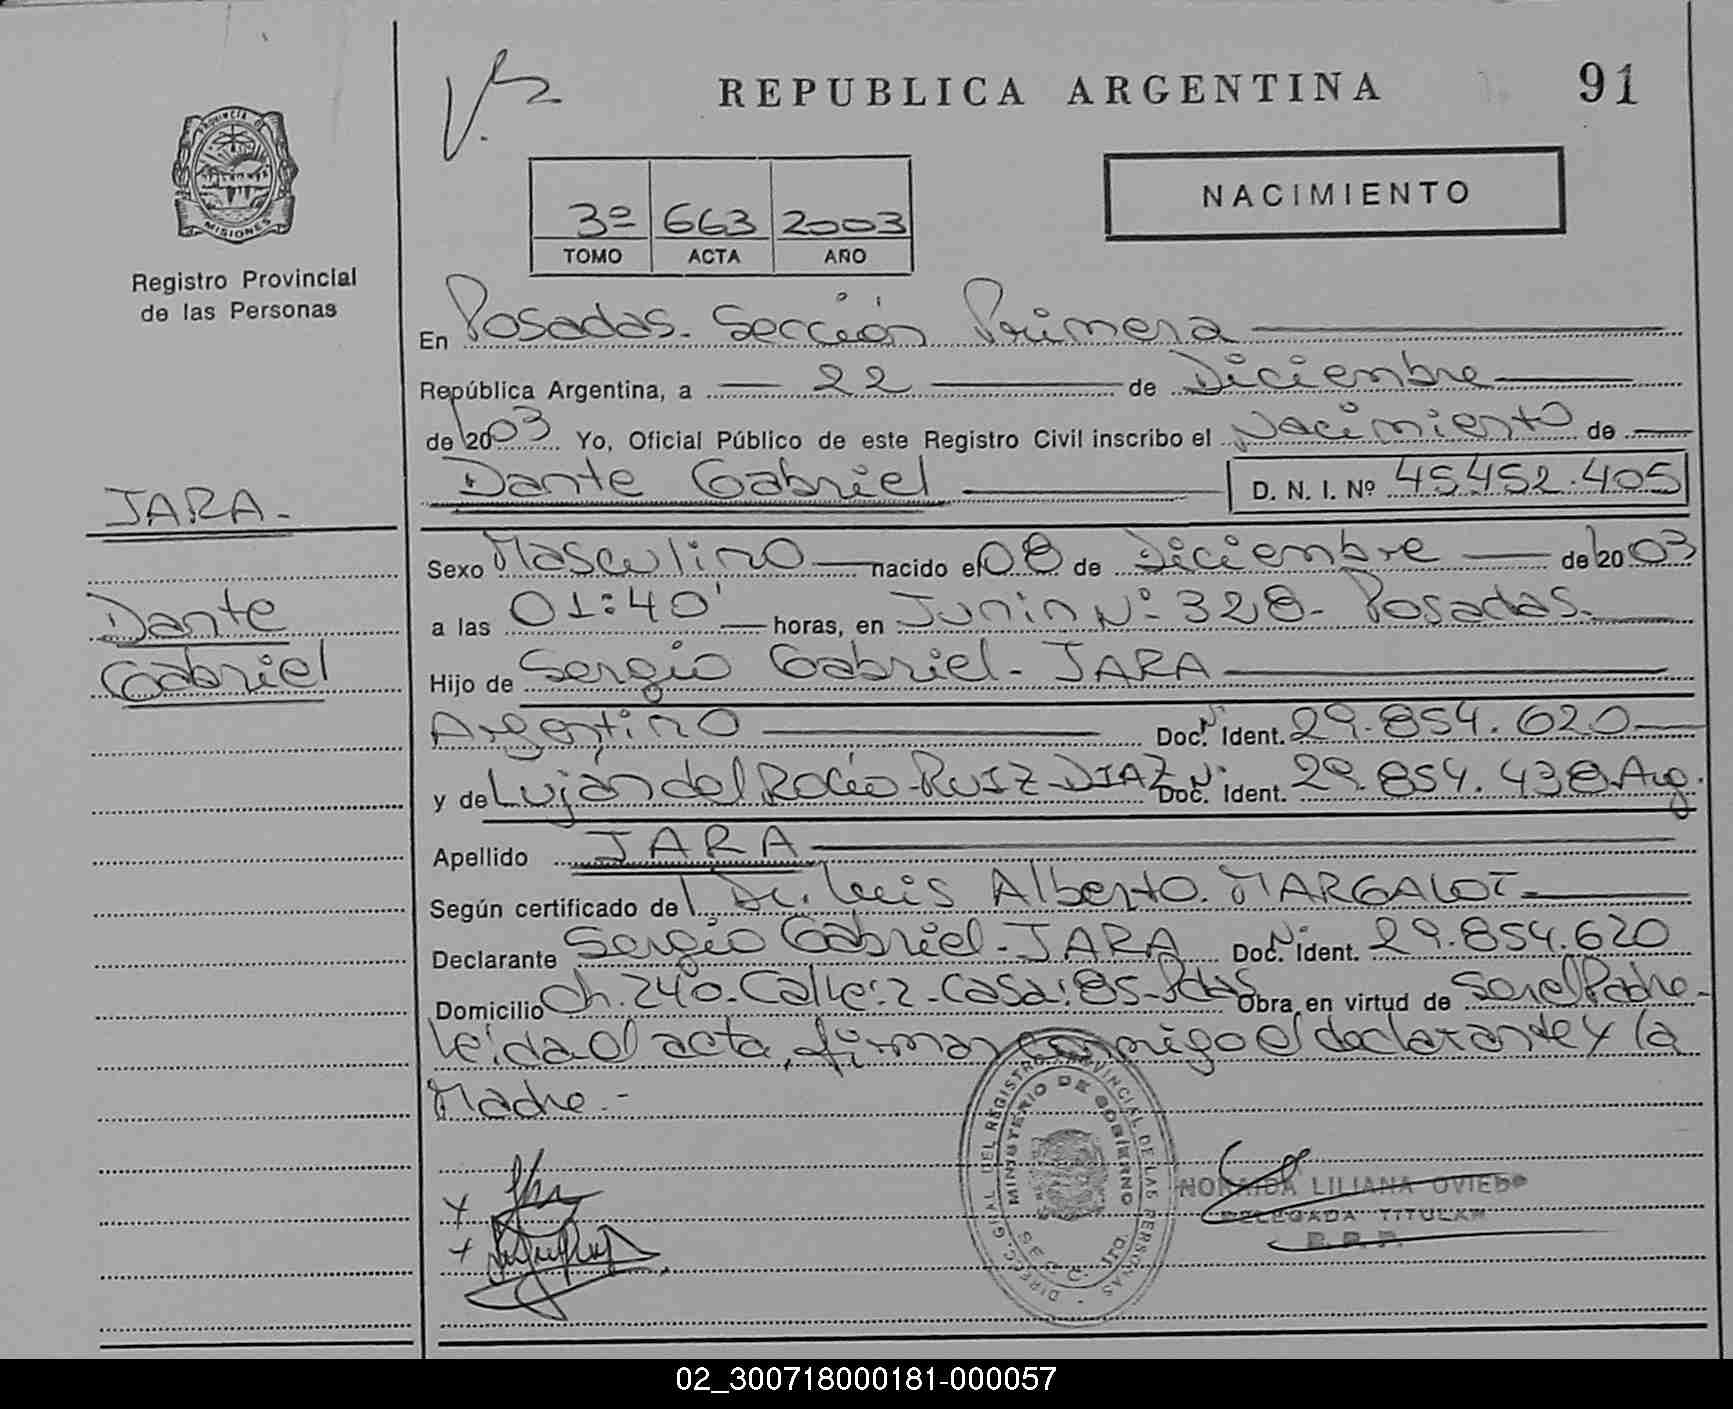 REPUBLICA ARGENTINA 91
PROVINCIA DE MISIONES
Registro Provincial
de las Personas
NACIMIENTO
3º 663 2003
TOMO ACTA AÑO
En Posadas. Sección Primera
República Argentina, a 22 de Diciembre
de 2003 Yo, Oficial Público de este Registro Civil inscribo el Nacimiento de
Dante Gabriel D. N. I. Nº 45.452.405
JARA.
Sexo Masculino nacido el 08 de Diciembre de 2003
Dante
a las 01:40' horas, en Junin Nº 328- Posadas.
Gabriel
Hijo de Sergio Gabriel - JARA
Argentino Doc. Nº Ident. 29.854.620
y de Luján del Rocío - RUIZ DIAZ Doc. Nº Ident. 29.854.438 Arg.
Apellido JARA
Según certificado del Dr. Luis Alberto. MARGALOT
Declarante Sergio Gabriel - JARA Doc. Nº Ident. 29.854.620
Domicilio Ch. 240 - Calle: 2 - Casa: 85 - Pdas Obra en virtud de Ser el Padre -
Leída el acta, firman conmigo el declarante y la
Madre. -
DIRECC. GRAL. DEL REGISTRO PROVINCIAL DE LAS PERSONAS
MINISTERIO DE GOBIERNO
LILIANA OVIEDO
DELEGADA TITULAR
R. P. P.
02_300718000181-000057